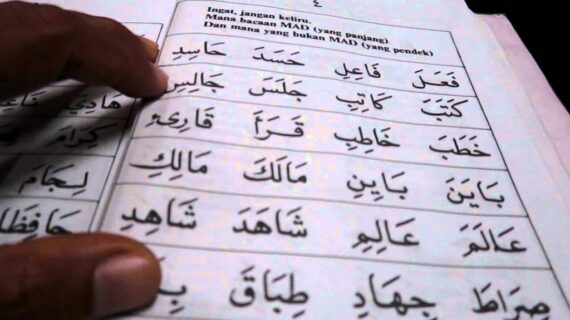 ٤
Ingat, jangan keliru.
Mana bacaan MAD (yang panjang)
Dan mana yang bukan MAD (yang pendek)
فَعَلَ فَاعِلِ حَسَدَ حَاسِدِ
كَتَبَ كَاتِبِ جَلَسَ جَالِسِ
خَطَبَ خَاطِبِ قَرَأَ قَارِئِ
بَايَنَ بَايِنِ مَالَكَ مَالِكِ
عَالَمَ عَالِمِ شَاهَدَ شَاهِدِ
صِرَاطَ جِهَادِ طِبَاقَ
هَادِي
كِرَامَ
لِجَامَ